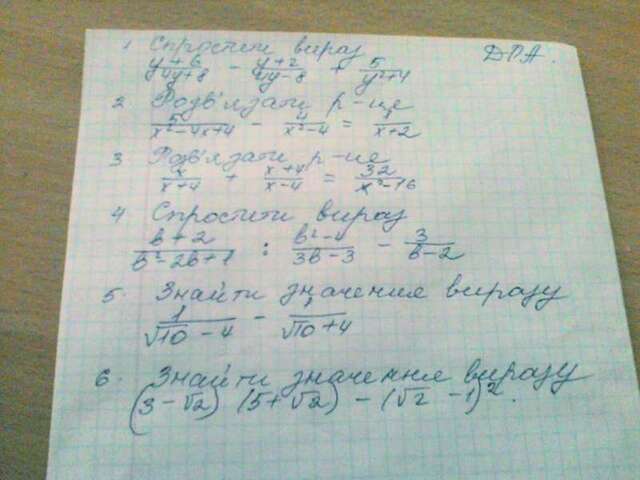 ДПА.
1 Спростити вираз
(y+6)/(4y+8) - (y+2)/(4y-8) + 5/(y²+4)
2 Розв'язати р-не
5/(x²-4x+4) - 4/(x²-4) = 1/(x+2)
3 Розв'язати р-не
x/(x+4) + (x+4)/(x-4) = 32/(x²-16)
4 Спростити вираз
(b+2)/(b²-2b+1) : (b²-4)/(3b-3) - 3/(b-2)
5. Знайти значення виразу
1/(√10-4) - 1/(√10+4)
6. Знайти значення виразу
(3-√2) (5+√2) - (√2 -1)².